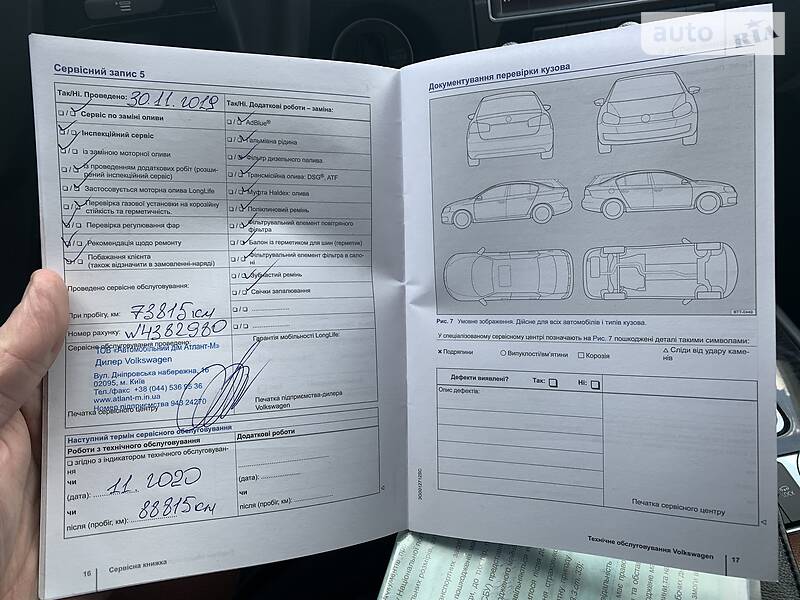 auto RIA
Сервісний запис 5
Так/Ні. Проведено: 30.11.2019
Сервіс по заміні оливи
Інспекційний сервіс
із заміною моторної оливи
із проведенням додаткових робіт (розши-
рений інспекційний сервіс)
Застосовується моторна олива LongLife
Перевірка газової установки на корозійну
стійкість та герметичність.
Перевірка регулювання фар
Рекомендація щодо ремонту
Побажання клієнта
(також відзначити в замовленні-наряді)
Проведено сервісне обслуговування:
При пробігу, км: 73815 км
Номер рахунку: W4382980
Сервісне обслуговування проведено:
ТОВ «Автомобільний Дім Атлант-М»
Дилер Volkswagen
Вул. Дніпровська набережна, 16
02095, м. Київ
Тел./факс +38 (044) 536 95 36
www.atlant-m.in.ua
Номер підприємства 943 24270
Печатка сервісного центру
Так/Ні. Додаткові роботи – заміна:
AdBlue®
Гальмівна рідина
Фільтр дизельного палива
Трансмісійна олива: DSG®, ATF
Муфта Haldex: олива
Поліклиновий ремінь
Фільтрувальний елемент повітряного
фільтра
Балон із герметиком для шин (герметик)
Фільтрувальний елемент фільтра в сало-
ні
Зубчастий ремінь
Свічки запалювання
Гарантія мобільності LongLife:
Печатка підприємства-дилера
Volkswagen
Наступний термін сервісного обслуговування
Роботи з технічного обслуговування
згідно з індикатором технічного обслуговуван-
ня
чи
(дата): 11.2020
чи
після (пробіг, км): 88815 км
Додаткові роботи
(дата):
чи
після (пробіг, км):
16 Сервісна книжка
Документування перевірки кузова
Рис. 7 Умовне зображення. Дійсне для всіх автомобілів і типів кузова.
У спеціалізованому сервісному центрі позначають на Рис. 7 пошкоджені деталі такими символами:
× Подряпини ○ Випуклості/вм'ятини □ Корозія △ Сліди від удару каме-
нів
Дефекти виявлені? Так: Ні:
Опис дефектів:
Печатка сервісного центру
Технічне обслуговування Volkswagen 17